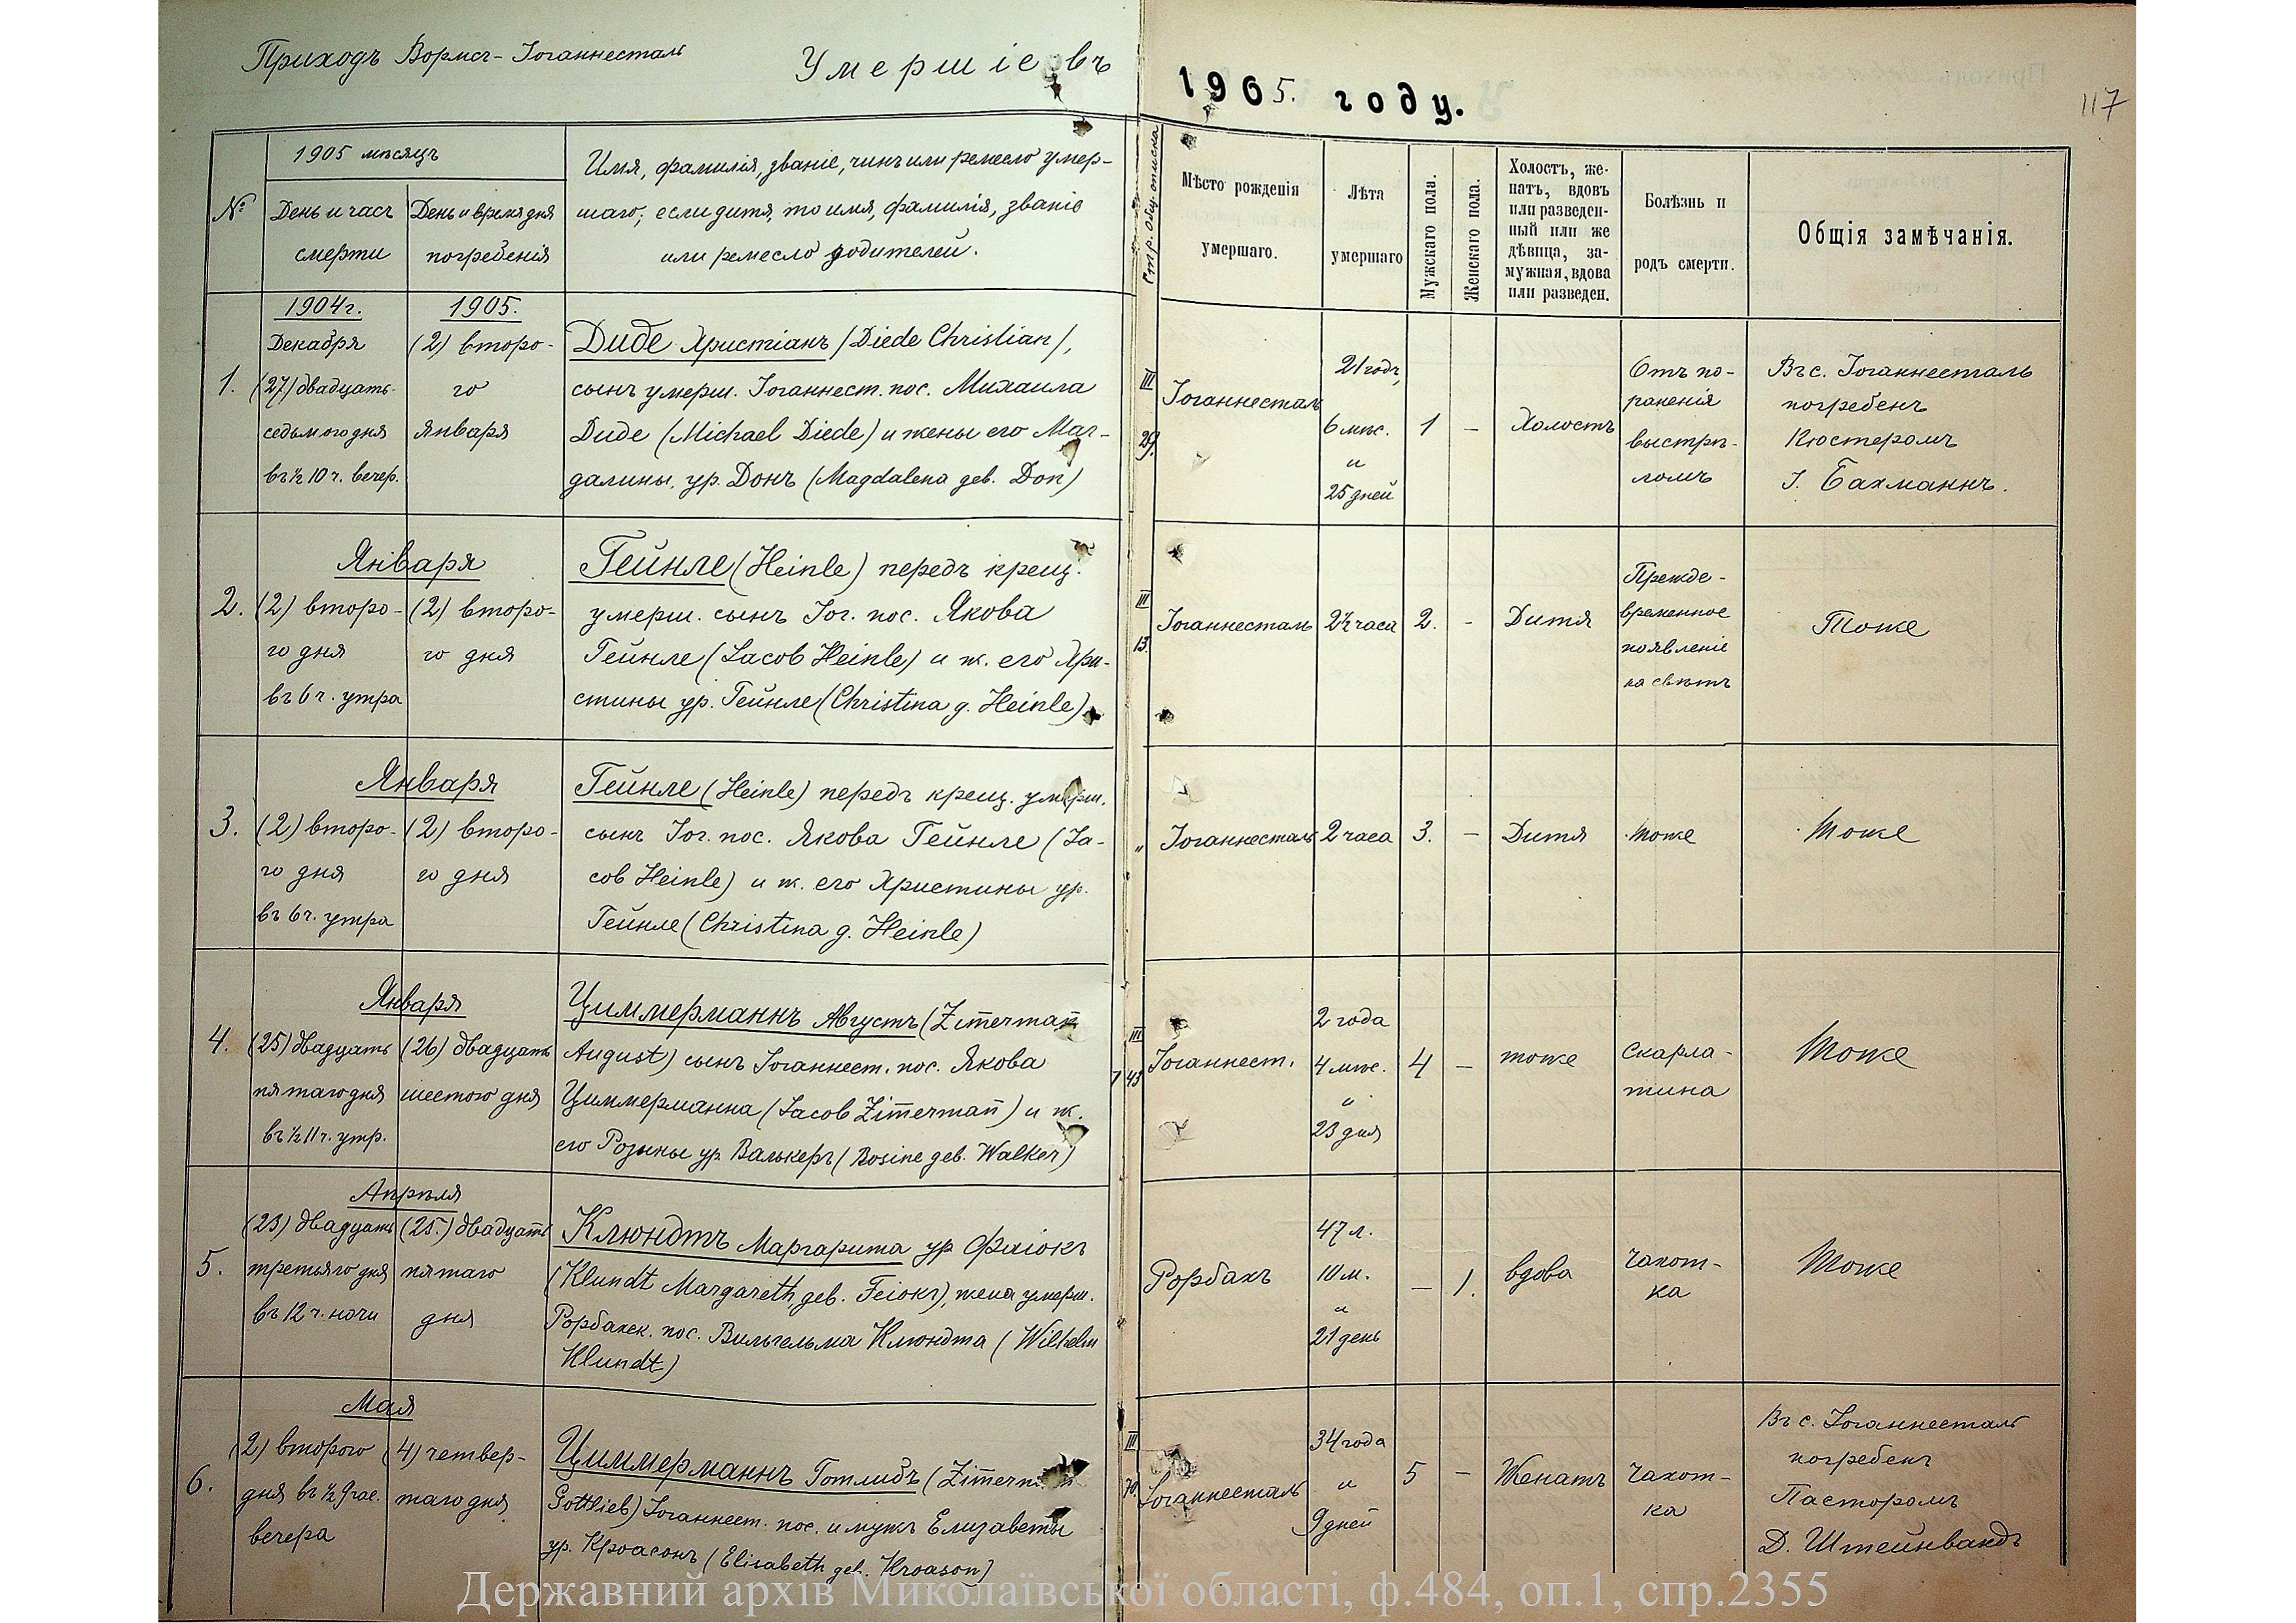 Приходъ Вормсъ-Іоганнесталь
Умершіе въ
1905. году.
117
№
1905 мѣсяцъ
День и часъ
смерти
День и время дня
погребенія
Имя, фамилія, званіе, чинъ или ремесло умер-
шаго; если дитя, то имя, фамилія, званіе
или ремесло родителей.
Мѣсто рожденія
умершаго.
Лѣта
умершаго
Мужскаго пола.
Женскаго пола.
Холостъ, же-
натъ, вдовъ
или разведен-
ный или же
дѣвица, за-
мужная, вдова
или разведен.
Болѣзнь и
родъ смерти.
Общія замѣчанія.
1.
1904 г.
Декабря
(27) двадцать
седьмого дня
въ ½ 10 ч. вечер.
1905.
(2) второ-
го
января
Диде Христіанъ /Diede Christian/,
сынъ умерш. Іоганнест. пос. Михаила
Диде (Michael Diede) и жены его Маг-
далины, ур. Донъ (Magdalena geb. Don)
III
29.
Іоганнесталь
21 годъ,
6 мѣс.
и
25 дней
1
–
Холостъ
Отъ по-
раненія
выстрѣ-
ломъ
Въ с. Іоганнесталь
погребенъ
Кюстеромъ
І. Бахманнъ.
2.
Января
(2) второ-
го дня
въ 6 ч. утра
(2) второ-
го дня
Гейнле (Heinle) передъ крещ.
умерш. сынъ Іог. пос. Якова
Гейнле (Jacob Heinle) и ж. его Хри-
стины ур. Гейнле (Christina g. Heinle)
III
13.
Іоганнесталь
2½ часа
2.
-
Дитя
Прежде-
временное
появленіе
на свѣтъ
Тоже
3.
Января
(2) второ-
го дня
въ 6 ч. утра
(2) второ-
го дня
Гейнле (Heinle) передъ крещ. умерш.
сынъ Іог. пос. Якова Гейнле (Ja-
cob Heinle) и ж. его Христины ур.
Гейнле (Christina g. Heinle)
"
Іоганнесталь
2 часа
3.
–
Дитя
тоже
Тоже
4.
Января
(25) двадцать
пятаго дня
въ ½ 11 ч. утр.
(26) двадцать
шестого дня
Циммерманнъ Августъ (Zim̄erman̄
August) сынъ Іоганнест. пос. Якова
Циммерманна (Jacob Zim̄erman̄) и ж.
его Розины ур. Валькеръ (Rosine geb. Walker)
III
43
Іоганнест.
2 года
4 мѣс.
и
23 дня
4
–
тоже
Скарла-
тина
Тоже
5.
Апрѣля
(23) двадцать
третьяго дня
въ 12 ч. ночи
(25.) двадцать
пятаго
дня
Клюндтъ Маргарита ур Фаіокъ
(Klundt Margareth, geb. Feiокъ), жена умерш.
Рорбахск. пос. Вильгельма Клюндта (Wilhelm
Klundt)
Рорбахъ
47 л.
10 м.
и
21 день
–
1.
вдова
Чахот-
ка
Тоже
6.
Мая
(2) второго
дня въ ½ 9 час.
вечера
(4) четвер-
таго дня
Циммерманнъ Готлибъ (Zim̄erman̄
Gottlieb) Іоганнест. пос. и мужъ Елизаветы
ур. Кроасонъ (Elisabeth geb. Kroason)
III
70.
Іоганнесталь
34 года
и
9 дней
5
–
Женатъ
Чахот-
ка
Въ с. Іоганнесталь
погребенъ
Пасторомъ
Д. Штейнвандъ
Державний архів Миколаївської області, ф.484, оп.1, спр.2355